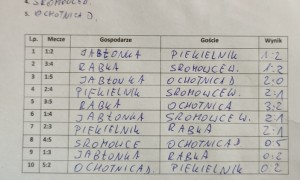 SROMOWCE W.
2 OCHOTNICA D.
Lp. Mecze Gospodarze Goście Wynik
1 1:2 JABŁONKA PIEKIELNIK 1:2
2 3:4 RABKA SROMOWCE W. 1:2
3 1:5 JABŁONKA OCHOTNICA D 2:0
4 2:4 PIEKIELNIK SROMOWCE W. 2:1
5 3:5 RABKA OCHOTNICA 3:2
6 1:4 JABŁONKA SROMOWCE W. 2:1
7 2:3 PIEKIELNIK RABKA 2:1
8 4:5 SROMOWCE OCHOTNICA D 0:5
9 1:3 JABŁONKA RABKA 0:2
10 5:2 OCHOTNICA D. PIEKIELNIK 0:2